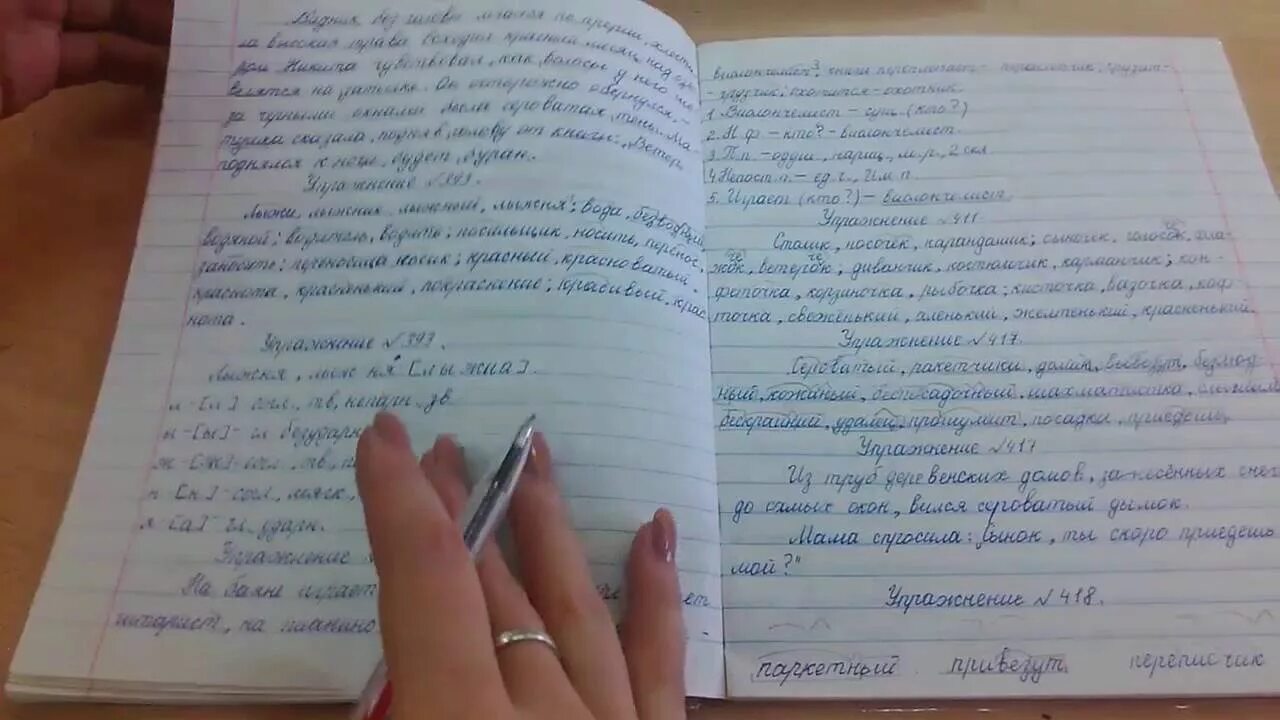 Всадник без головы мчался по прерии, хлеста-
ла высокая трава, восходил красный месяц над озе-
ром. Никита чувствовал, как волосы у него ше-
велятся на затылке. Он осторожно обернулся, –
за чёрными окнами была сероватая тень. Ма-
тушка сказала, подняв голову от книги: „Ветер
поднялся к ночи, будет буран.
Упражнение №393.
Лыжи, лыжник, лыжный, лыжня; вода, безводный,
водяной; водитель, водить; носильщик, носить, перенос,
носик; красный, красноватый,
краснота, красненький, покраснение; красивый, крас
нота.
Упражнение №393.
Лыжня, лыж ня [лыжна].
л-[л] согл., тв, непарн, зв
ы-[ы]- гл безударн
ж-[ж]-согл., тв, п
н [н]-согл., мягк,
я [а]-гл, ударн.
Упражнение
На баяне играет
гитарист, на пианино
виолончелист; книги переплетает- переплётчик, грузит-
-грузчик; охотится-охотник
1. Виолончелист – сущ. (кто?)
2. Н.ф – кто? – виолончелист.
3. П.п. – одуш., нариц., м.р., 2 скл
4. Непост. п. – ед.ч., Им.п.
5. Играет (кто?) – виолончелист.
Упражнение №411.
Столик, носочек, карандашик; сыночек, голосок, фла-
жок, ветерок; диванчик, костюмчик, карманчик; кон-
феточка, корзиночка, рыбочка; кисточка, вазочка, коф-
точка, свеженький, аленький, желтенький, красненький.
Упражнение №417.
Сероватый, ракетчики, домик, вывезут, безлюд
ный, кожаный, беспосадочный, шахматистка,
бескрайний, удалец, прошумит, посадка, приедешь,
Упражнение №417
Из труб деревенских домов, занесённых снего
до самых окон, вился сероватый дымок.
Мама спросила: „Сынок, ты скоро приедешь
мой?"
Упражнение №418.
паркетный привезут переписчик